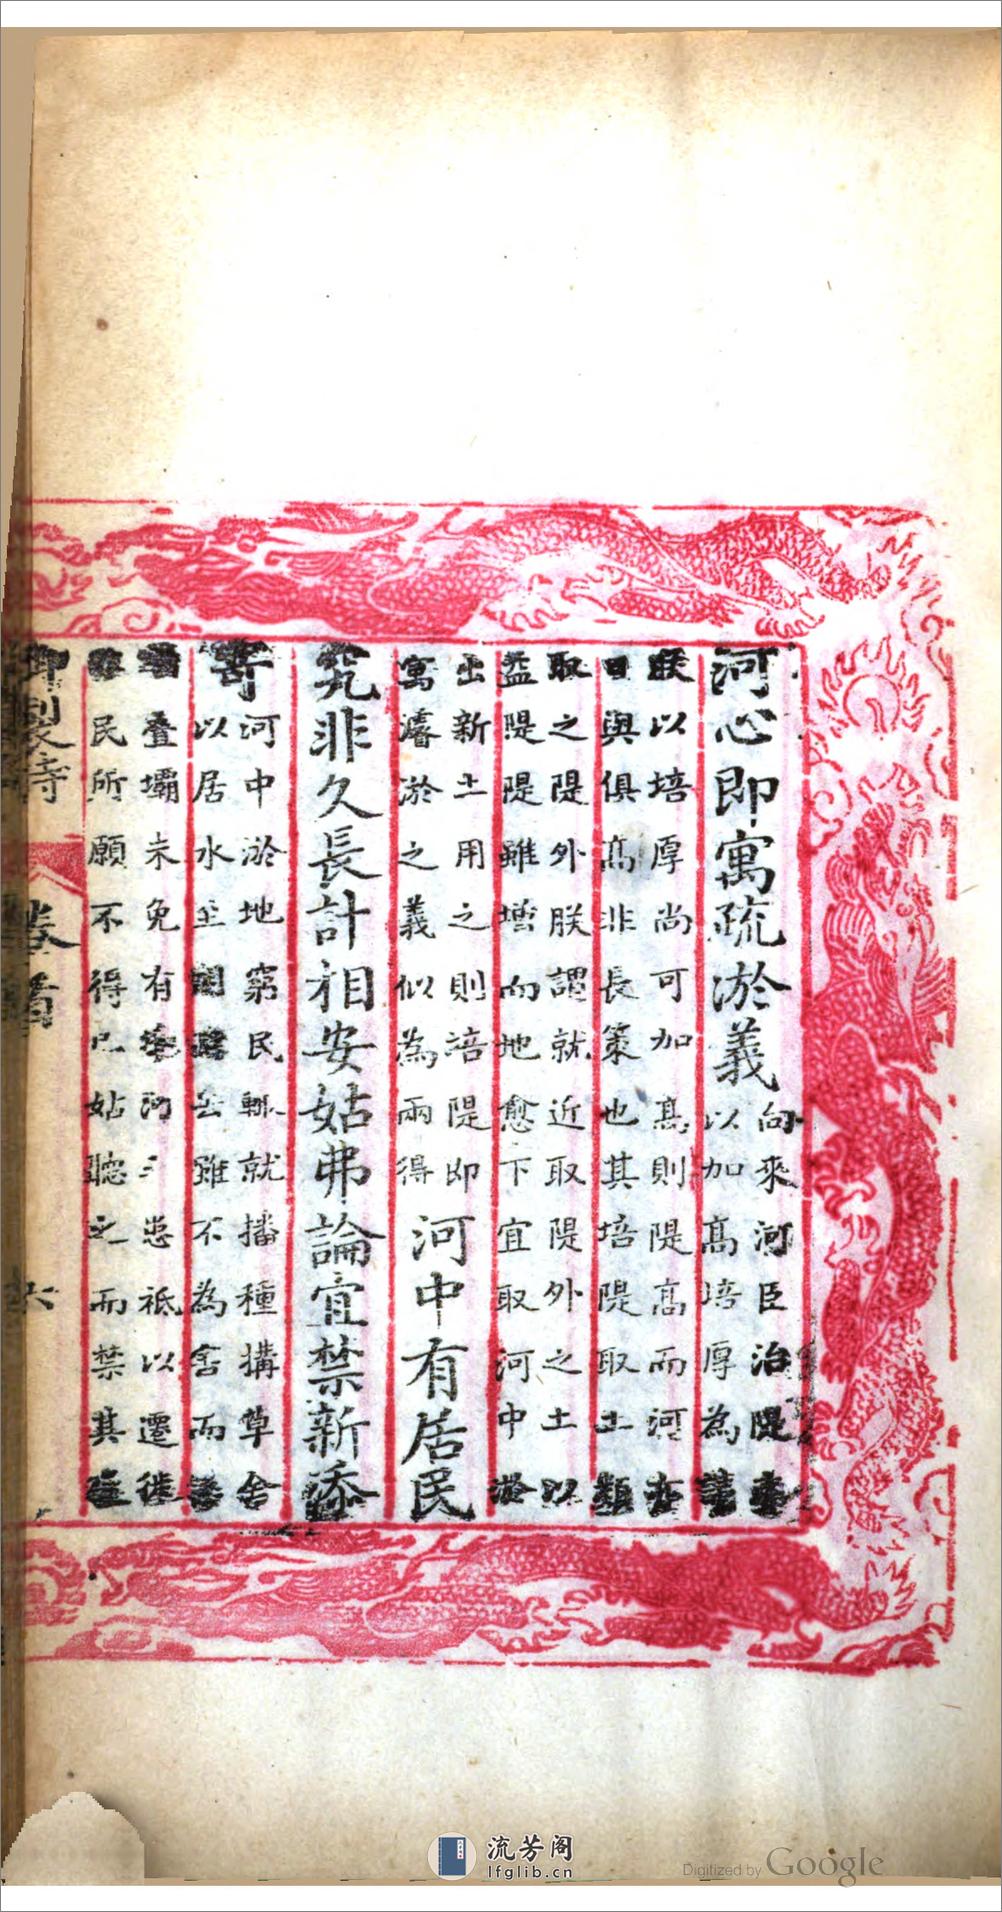 河心即寓疏淤義
向來河臣治隄
以加高培厚為
朕以培厚尚可加高則隄高而河
與俱高非長策也其培隄取土
取之隄外朕謂就近取隄外之土以
益隄隄雖增而地愈下宜取河中淤
出新土用之則培隄即
寓濬淤之義似為兩得
河中有居民
究非久長計相安姑弗論宜禁新添
河中淤地窮民輒就播種搆草舍
以居水至雖不為害而
叠壩未免有河患祇以遷徙
民所願不得已姑聽之而禁其
御製詩
卷
六
流芳阁
lfglib.cn
Digitized by Google